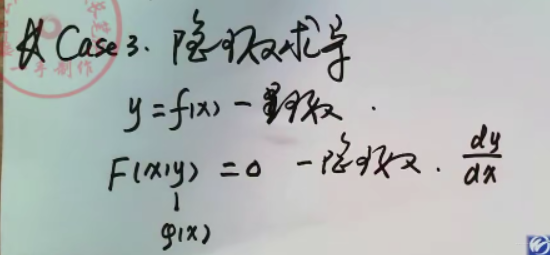 Case 3. 隐函数求导
y = f(x) — 显函数.
F(x,y) = 0 — 隐函数. dy/dx
φ(x)